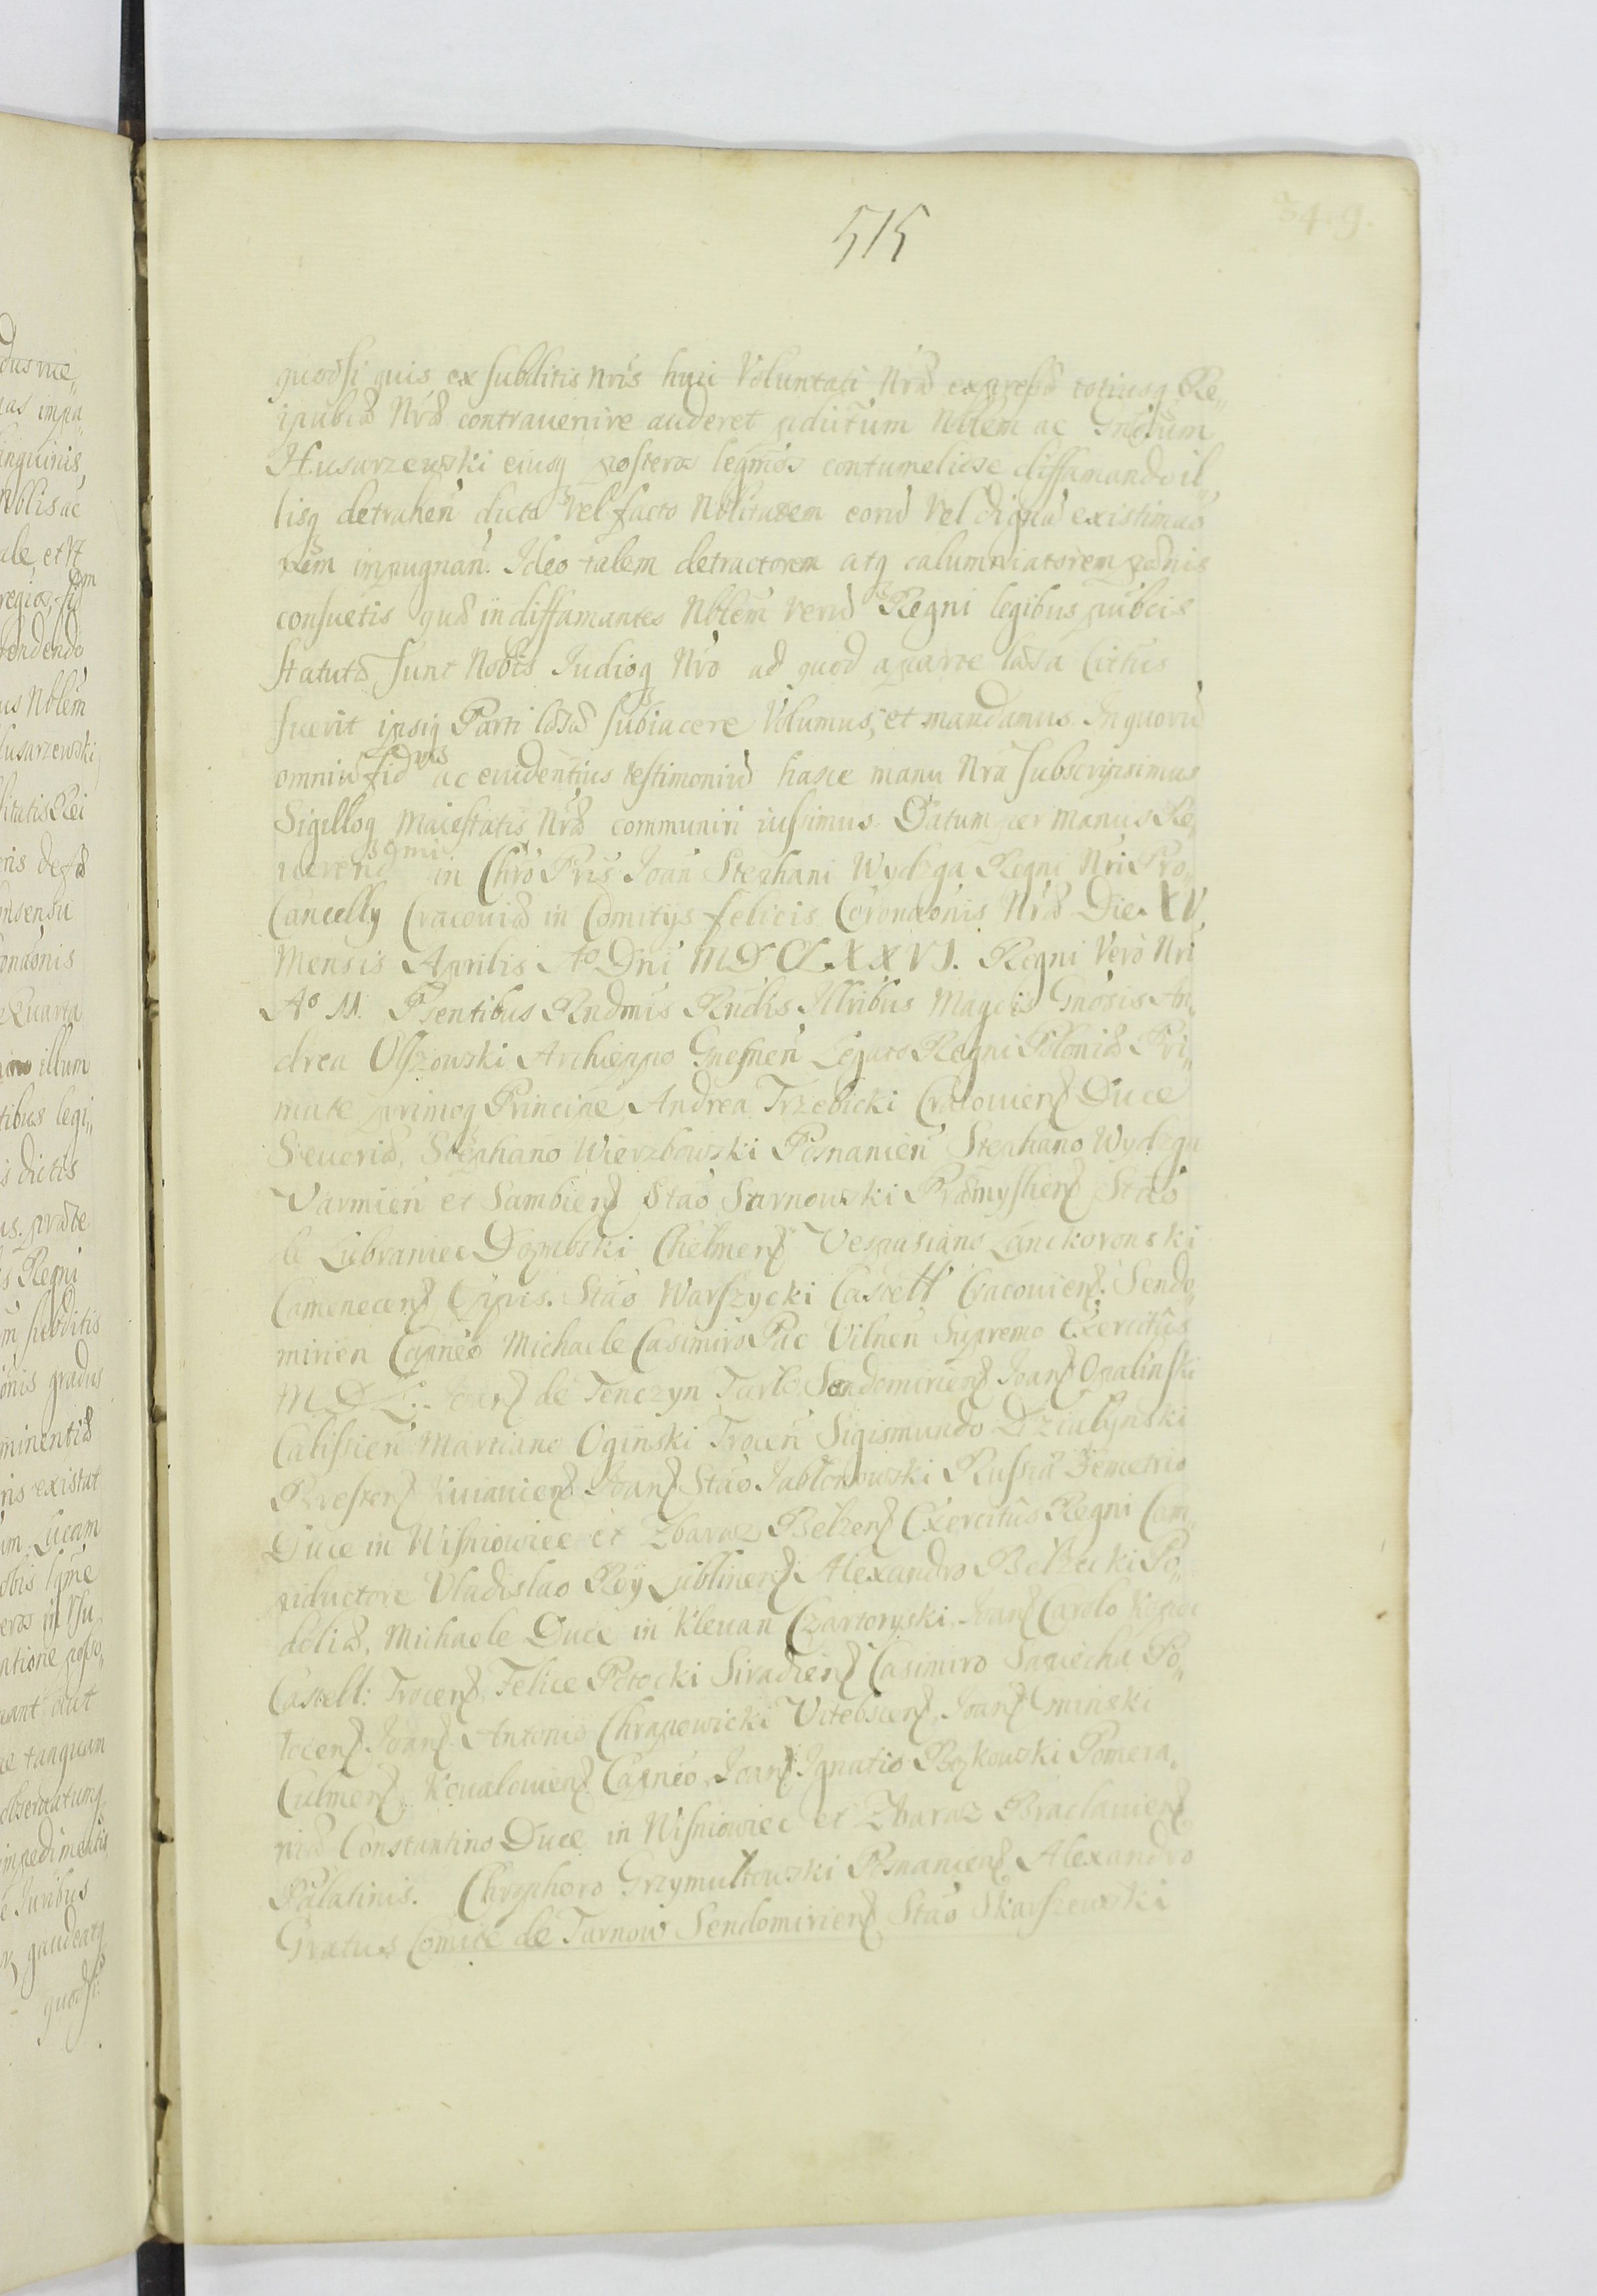 515
349.
quodsi quis ex subditis Nris huic Voluntati Nræ expressæ totiusq Re„
ipublæ Nræ contravenire auderet pdictum Nblem ac Gnosum
Husarzewski eiusq posteros legmos contumeliose diffamando il„
lisq detrahen dicto vel facto Nblitatem eorum Vel dignam existimao
nem impugnan. Ideo talem detractorem atq calumniatorem pœnis
consuetis quæ in diffamantes Nblem Verum Regni legibus publcis
statutæ sunt Nobis Iudioq Nro ad quod aparte læsa Cittus
fuerit ipsiq Parti læsæ subiacere Volumus, et mandamus. In quorum
omnium fidem ac evidentius testimonium hasce manu Nra subscripsimus
Sigilloq Maiestatis Nræ communiri iussimus. Datum per manus Re„
verendsmi in Chro Pris Ioan Stephani Wydzga Regni Nri Pro„
Cancelly Cracouiæ in Comitijs felicis Coronaonis Nræ Die XV.
Mensis Aprilis Ao Dni MDCLXXVI. Regni Vero Nri
Ao II. Psentibus Rndmis Rndis Illribus Magcis Gnosis An„
drea Olszowski Archieppo Gnesnen Legato Regni Poloniæ Pri„
mate primoq Principe, Andrea Trzebicki Cracouien Duce
Seueriæ, Stephano Wierzbowski Posnanien Stephano Wydzga
Varmien et Sambien Stao Sarnowski Præmyslien Stao
de Lubraniec Dombski Chelmen Vespasiano Lanckoronski
Camenecen Eppis. Stao Warszycki Castell Cracouien. Sendo„
mirien Capneo Michaele Casimiro Pac Vilnen Supremo Exercitus
M. D. L. Ioan de Tenczyn Tarlo Sendomirien Ioan Opalinski
Calissien Martiano Oginski Trocen Sigismundo Dzialynski
Bresten Kuiauien Ioan Stao Jablonowski Russiæ Demetrio
Duce in Wisniowiec et Zbaraz Belzen Exercitus Regni Cam„
piductore Vladislao Rey Lublinen Alexandro Belzecki Po„
doliæ, Michaele Duce in Klevan Czartoryski, Ioan Carolo Kopec
Castell: Trocen, Felice Potocki Siradien Casimiro Sapiecha Po„
locen Ioan Antonio Chrapowicki Vitebscen, Ioan Gninski
Culmen, Kowalouien Capneo, Ioan Ignatio Bąkowski Pomera„
niæ Constantino Duce in Wisniowiec et Zbaraz Braclauien
Palatinis. Chrophoro Grzymultowski Posnanien Alexandro
Gratus Comite de Tarnow Sendomirien Stao Skarszewski